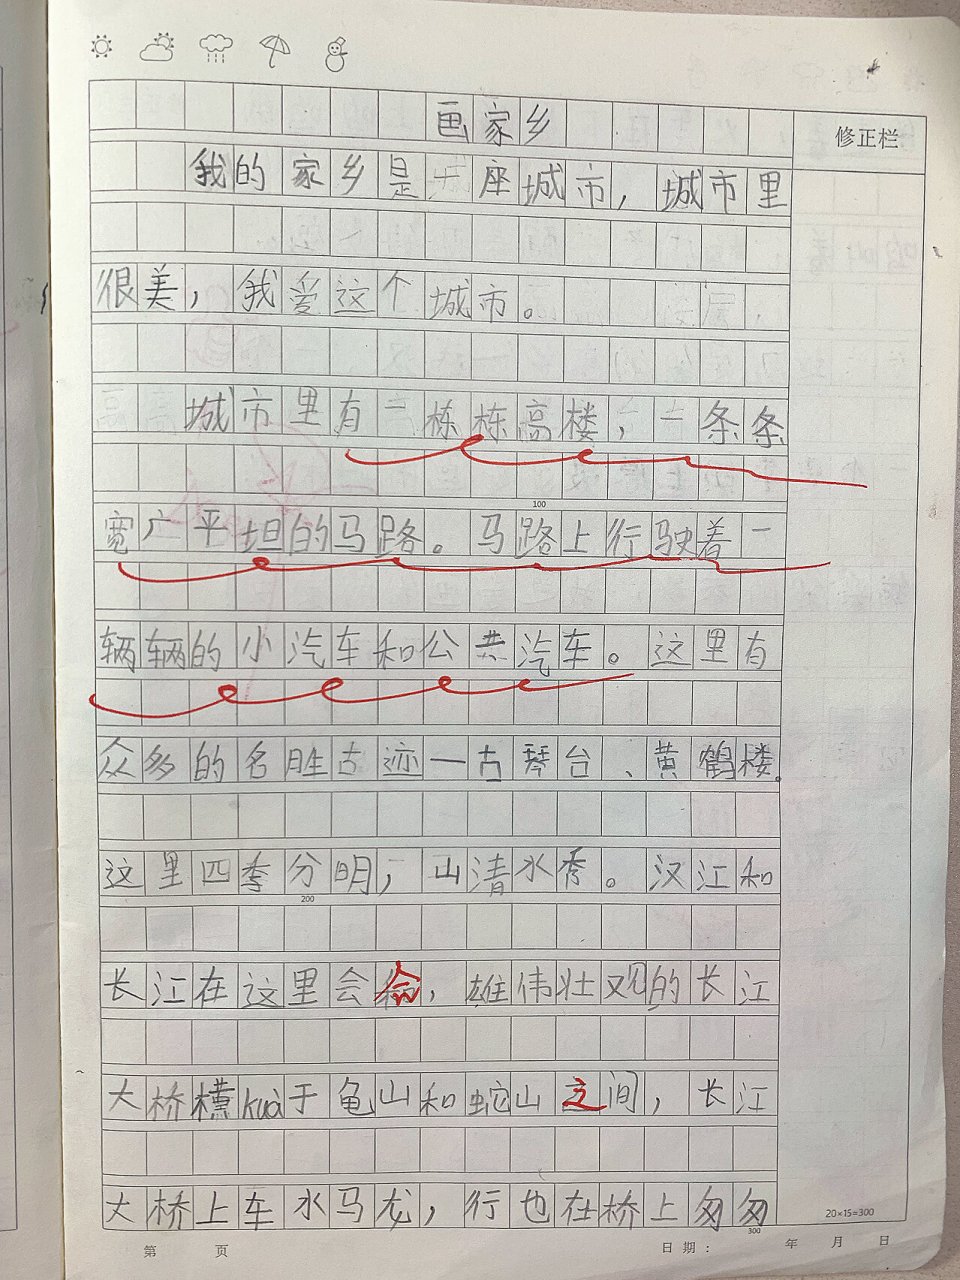 画家乡
修正栏
我的家乡是一座城市，城市里
很美，我爱这个城市。
城市里有一栋栋高楼，一条条
100
宽广平坦的马路。马路上行驶着一
辆辆的小汽车和公共汽车。这里有
众多的名胜古迹一古琴台、黄鹤楼。
这里四季分明，山清水秀。汉江和
200
长江在这里会合，雄伟壮观的长江
大桥横kuà于龟山和蛇山之间，长江
大桥上车水马龙，行也在桥上匆匆
300
20×15=300
第 页 日期： 年 月 日